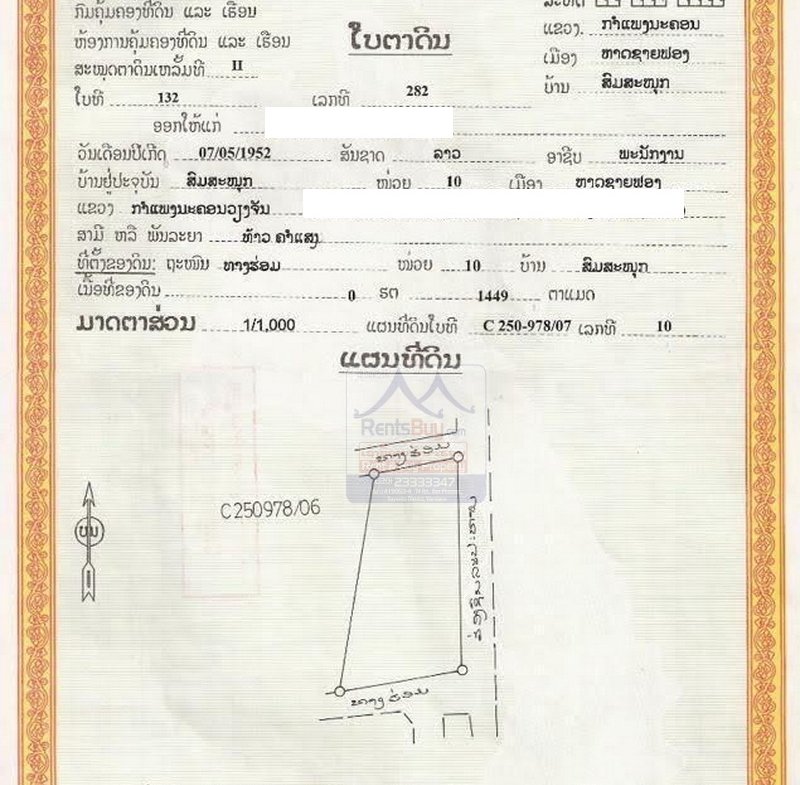 ກົມຄຸ້ມຄອງທີ່ດິນ ແລະ ເຮືອນ
ແຂວງ. ກຳແພງນະຄອນ
ຫ້ອງການຄຸ້ມຄອງທີ່ດິນ ແລະ ເຮືອນ
ໃບຕາດິນ
ເມືອງ ຫາດຊາຍຟອງ
ສະໝຸດຕາດິນເຫລັ້ມທີ II
ບ້ານ ສົມສະໜຸກ
ໃບທີ 132 ເລກທີ 282
ອອກໃຫ້ແກ່
ວັນເດືອນປີເກີດ 07/05/1952 ສັນຊາດ ລາວ ອາຊີບ ພະນັກງານ
ບ້ານຢູ່ປະຈຸບັນ ສົມສະໜຸກ ໜ່ວຍ 10 ເມືອງ ຫາດຊາຍຟອງ
ແຂວງ ກຳແພງນະຄອນວຽງຈັນ
ສາມີ ຫລື ພັນລະຍາ ທ້າວ ຄຳແສງ
ທີ່ຕັ້ງຂອງດິນ: ຖະໜົນ ທາງຮ່ອມ ໜ່ວຍ 10 ບ້ານ ສົມສະໜຸກ
ເນື້ອທີ່ຂອງດິນ 0 ຮຕ 1449 ຕາແມດ
ມາດຕາສ່ວນ 1/1,000 ແຜນທີ່ດິນໃບທີ C 250-978/07 ເລກທີ 10
ແຜນທີ່ດິນ
RentsBuy.com
ທາງຮ່ອມ
23333347
C250978/06
ທາງຮ່ອມ